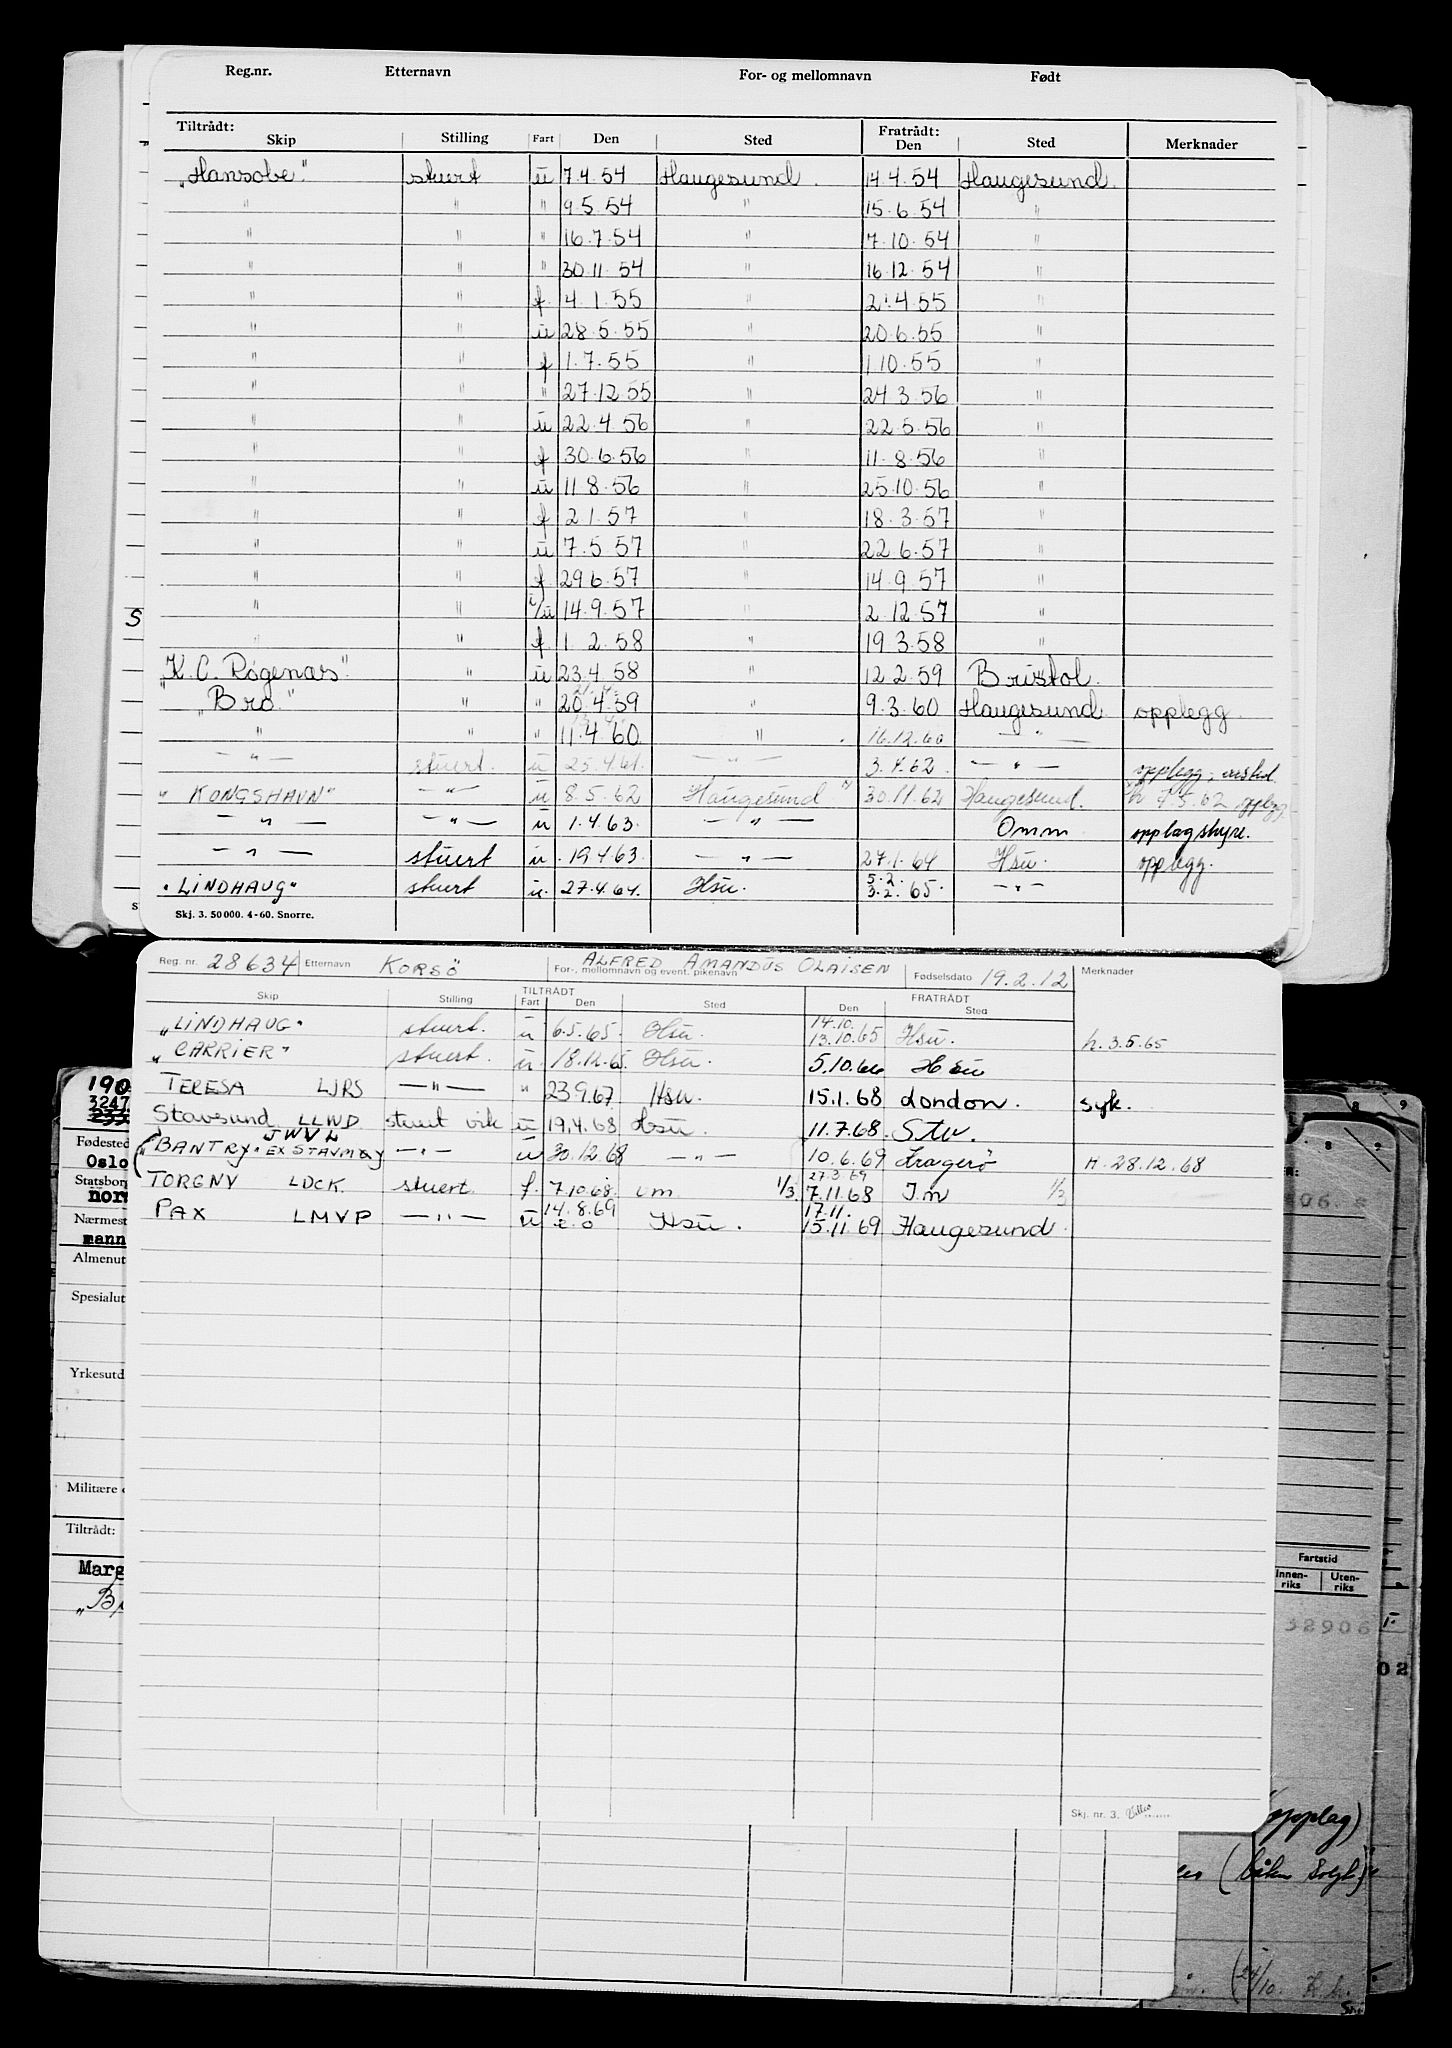 Reg.nr. Etternavn For- og mellomnavn Født
Tiltrådt: Skip Stilling Fart Den Sted Fratrådt: Den Sted Merknader
„Hansobe" stuert u 7.4.54 Haugesund. 14.4.54 Haugesund.
" " " 9.5.54 " 15.6.54 "
" " " 16.7.54 " 7.10.54 "
" " " 30.11.54 " 16.12.54 "
" " f. 4.1.55 " 21.4.55 "
" " u 28.5.55 " 20.6.55 "
" " f 1.7.55 " 1.10.55 "
" " " 27.12.55 " 24.3.56 "
" " u 22.4.56 " 22.5.56 "
" " f 30.6.56 " 11.8.56 "
" " u 11.8.56 " 25.10.56 "
" " f 2.1.57 " 18.3.57 "
" " u 7.5.57 " 22.6.57 "
" " f. 29.6.57 " 14.9.57 "
" " i/u 14.9.57 " 2.12.57 "
" " f. 1.2.58 " 19.3.58 "
„K.C. Rogenæs" " u 23.4.58 " 12.2.59 Bristol.
„Bro." " " 20.4.59 " 9.3.60 Haugesund opplegg.
" " " 11.4.60 " 16.12.60 — " —
— " — stuert. u 25.4.61. — " — 3.4.62. — " — opplegg,
„KONGSHAVN" — " — u 8.5.62 Haugesund 30.11.62 Haugesund. h 4.5.62 opplegg.
— " — — " — u 1.4.63. — " — Omm opplagshyre.
— " — stuert u . 19.4.63. — " — 27.1.64 Hsu. opplegg.
"LINDHAUG" stuert u. 27.4.64. Hsu. 5.2. 3.2.65. — " —
Skj. 3. 50 000. 4-60. Snorre.
Reg. nr. 28634 Etternavn KORSÖ For-, mellomnavn og event. pikenavn ALFRED AMANDUS OLAISEN Fødselsdato 19.2.12 Merknader
Skip Stilling TILTRÅDT Fart Den Sted FRATRÅDT Den Sted
„LINDHAUG" stuert. u 6.5.65. Hsu. 14.10. 13.10.65 Hsu. h. 3.5.65
„CARRIER" stuert. u. 18.12.65. Hsu. 5.10.66 Hsu
TERESA LJRS — " — " 23.9.67 Hsu. 15.1.68 London. syk.
Stavsund LLWD stuert vik u 19.4.68 Hsu. 11.7.68. Stv.
JWVL
("BANTRY" EX STAVMØY — " — u 30.12.68 — " — 10.6.69 Kragerö H. 28.12.68
TORGNY LDCK. stuert. f. 7.10.68. um 1/3. 27.3.69 7.11.68 I.m 1/3
PAX LMVP — " — u 14.8.69 Hsu. 17.11. 15.11.69 Haugesund.
Skj. nr. 3.
190
3247
Fødested
Oslo
Statsborg
nors
Nærmest
mann
Almenut
Spesialut
Yrkesutd
Militære
Tiltrådt:
Marg
„B
S
8 9
8 9
06.
Fartstid
Innenriks Utenriks
32906
02
opplag)
(24/10.